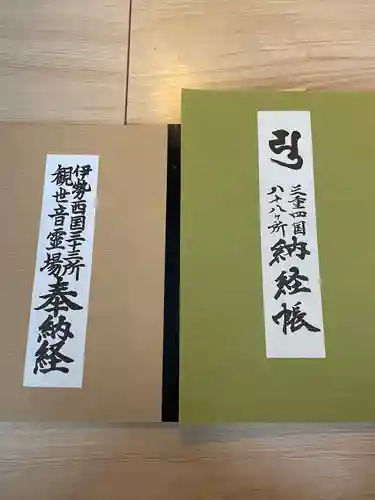 伊勢西国三十三所
観世音霊場奉納経
三重四国
八十八ヶ所
納経帳